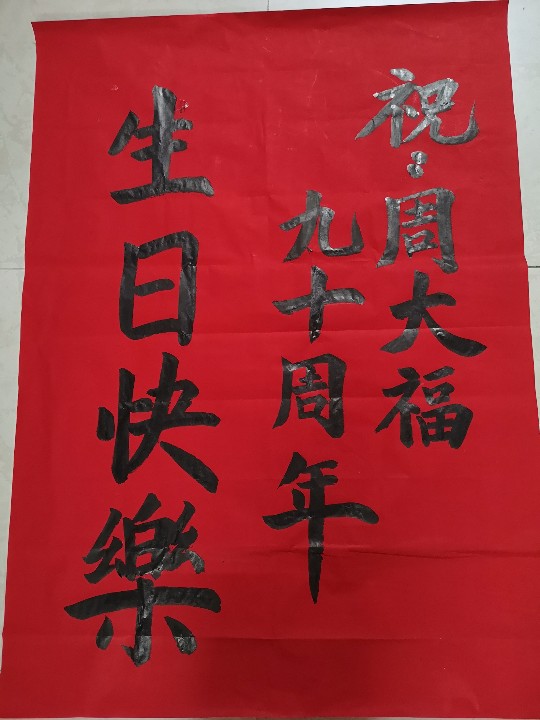 祝:周大福
九十周年
生日快樂